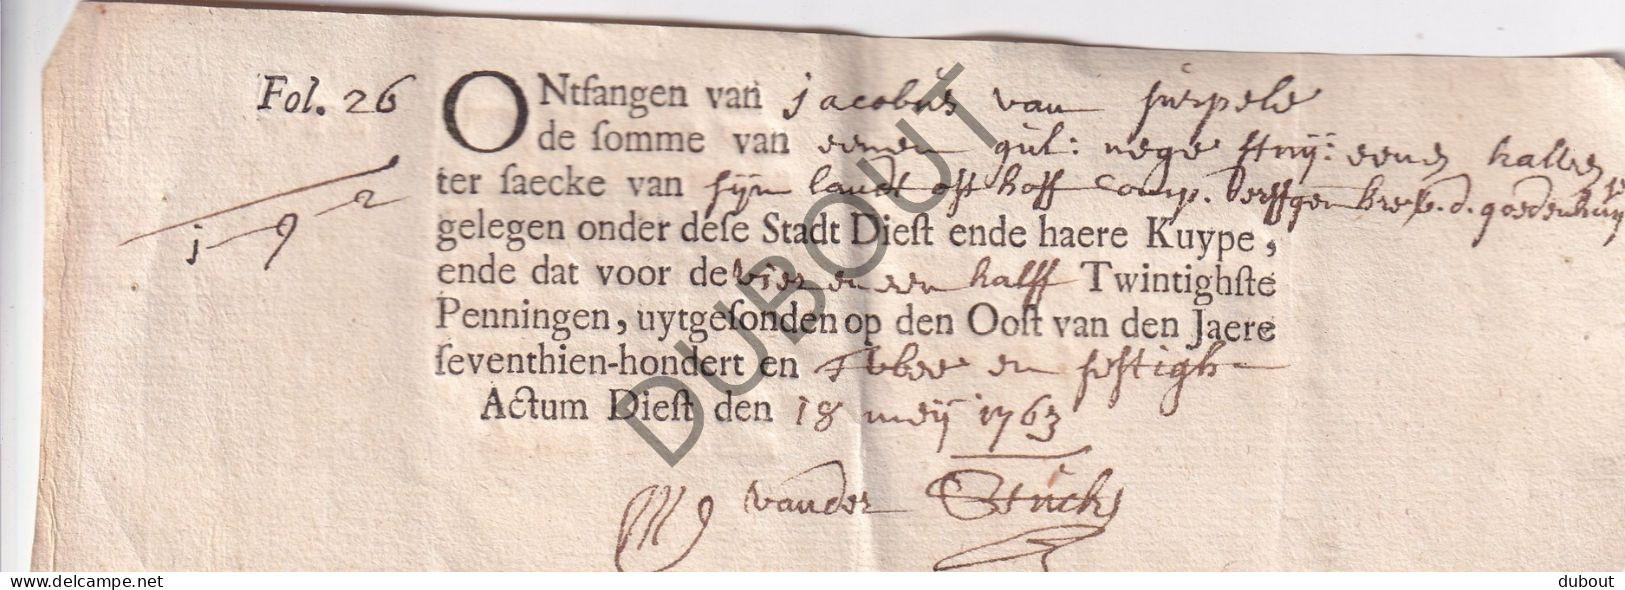 Fol. 26
ONtfangen van jacobus van
de ſomme van eenen gul: nege stuij: eenen halven
ter ſaecke van sijn landt oft hoff Comp.
gelegen onder deſe Stadt Dieſt ende haere Kuype,
ende dat voor de vier en een halff Twintighſte
Penningen, uytgeſonden op den Ooſt van den Jaere
ſeventhien-hondert en twee en sestigh
j - 9 - 2
Actum Dieſt den 18 meij 1763
vander
DUBOUT
delcampe.net
dubout